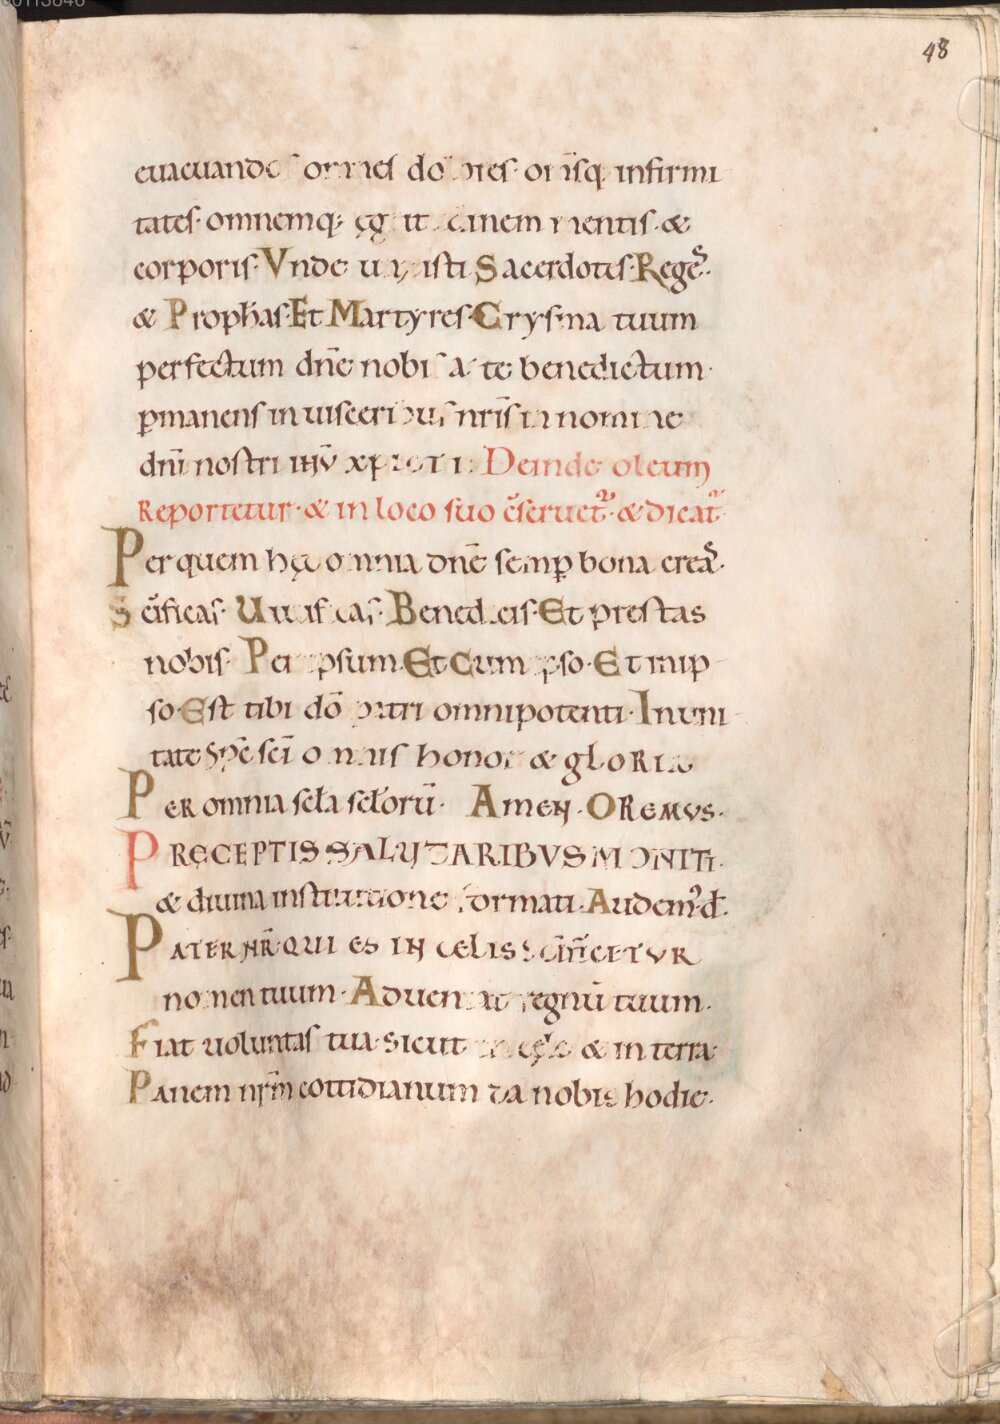 48
euacuandos omnes dolores omīsq infirmi
tates· omnemq; ęgritudinem mentis· &
corporis· Vnde unxisti Sacerdotes· Reges·
& Prophas· Et Martyres· Crysma tuum
perfectum dn̄e nobis a te benedictum·
ꝑmanens in uisceribus nr̄is in nomine
dn̄i nostri ihū xpicti: Deinde oleum
Reportetur· & in loco suo c̄seruet᷑· & dicat᷑·
Per quem hęc omnia dn̄e semꝑ bona creas·
Sc̄ificas· Uiuificas· Benedicis· Et prestas
nobis· Per ipsum· Et cum ipso· Et in ip
so· Est tibi dō patri omnipotenti· In uni
tate sp̄c sc̄i omnis honor & gloria
Per omnia scła scłorū· Amen· Oremus·
PRECEPTIS SALUTARIBVS MONITI·
& diuina institutione formati· Audem᷒ d̄·
PATER NR̄ QUI ES IN CELIS SC̄IFICETVR
nomen tuum· Adueniat regnū tuum·
Fiat uoluntas tua· sicut in cęlo & in terra·
Panem nr̄m cottidianum da nobis hodie·